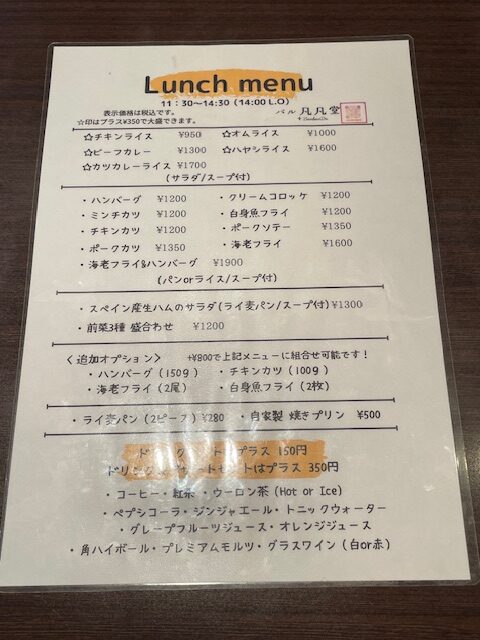 Lunch menu
11：30～14:30（14:00 L.O）
表示価格は税込です。
☆印はプラス¥350で大盛できます。
バル 凡凡堂
☆チキンライス ¥950 ☆オムライス ¥1000
☆ビーフカレー ¥1300 ☆ハヤシライス ¥1600
☆カツカレーライス ¥1700
（サラダ/スープ付）
・ハンバーグ ¥1200 ・クリームコロッケ ¥1200
・ミンチカツ ¥1200 ・白身魚フライ ¥1200
・チキンカツ ¥1200 ・ポークソテー ¥1350
・ポークカツ ¥1350 ・海老フライ ¥1600
・海老フライ&ハンバーグ ¥1900
（パンorライス/スープ付）
・スペイン産生ハムのサラダ（ライ麦パン/スープ付）¥1300
・前菜3種 盛合わせ ¥1200
＜追加オプション＞ +¥800で上記メニューに組合せ可能です！
・ハンバーグ（150g） ・チキンカツ（100g）
・海老フライ（2尾） ・白身魚フライ（2枚）
・ライ麦パン（2ピース）¥280 ・自家製 焼きプリン ¥500
プラス 150円
セットはプラス 350円
・コーヒー・紅茶・ウーロン茶（Hot or Ice）
・ペプシコーラ・ジンジャエール・トニックウォーター
・グレープフルーツジュース・オレンジジュース
・角ハイボール・プレミアムモルツ・グラスワイン（白or赤）